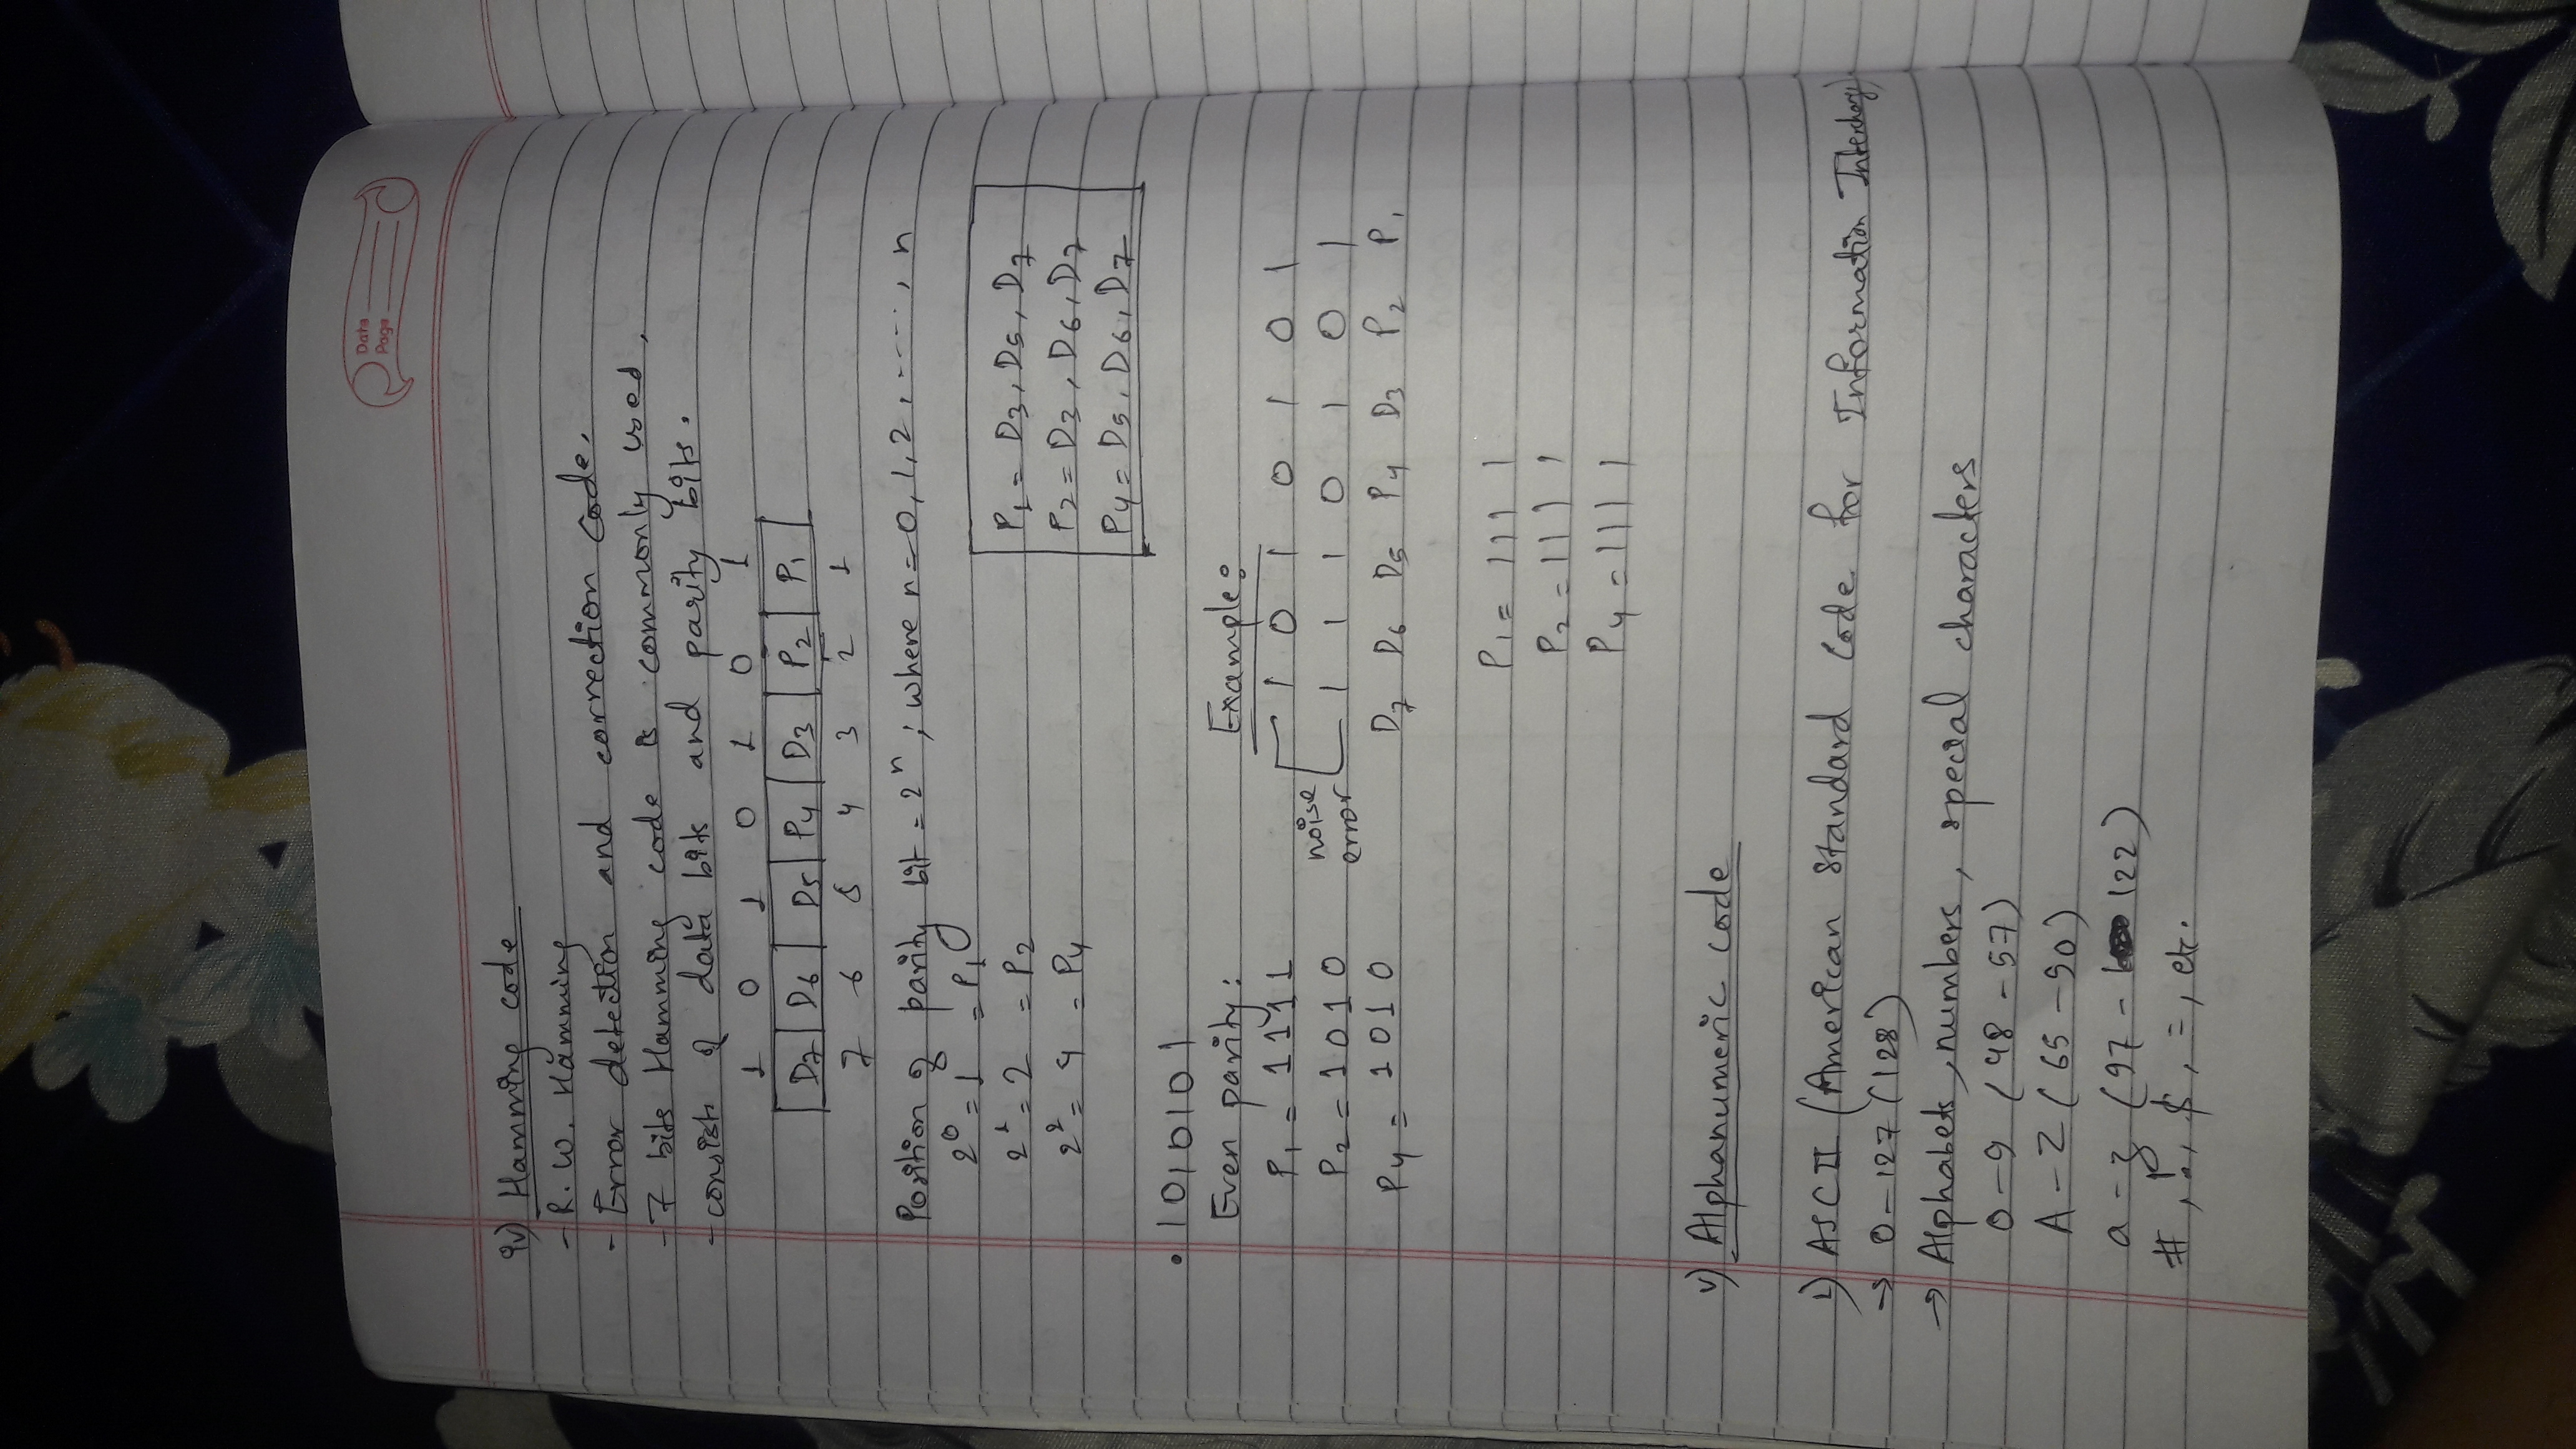 Date
Page
iv) Hamming code
- R. W. Hamming
- Error detection and correction code.
- 7 bits Hamming code is commonly used.
- consists of data bits and parity bits.
1 0 1 0 1 0 1
D7 D6 D5 P4 D3 P2 P1
7 6 5 4 3 2 1
Position of parity bit = 2^n ; where n = 0, 1, 2, ----, n
2^0 = 1 = P1
2^1 = 2 = P2
2^2 = 4 = P4
P1 = D3, D5, D7
P2 = D3, D6, D7
P4 = D5, D6, D7
• 1010101
Even parity:
P1 = 1111
P2 = 1010
P4 = 1010
Example:
noise error
1 0 1 0 1 0 1
1 1 1 0 1 0 1
D7 D6 D5 P4 D3 P2 P1
P1 = 111 1
P2 = 111 1
P4 = 111 1
v) Alphanumeric code
1) ASCII (American Standard Code for Information Interchange)
→ 0-127 (128)
→ Alphabets, numbers, special characters
0-9 (48-57)
A-Z (65-90)
a-z (97-122)
#, !, $, =, etc.